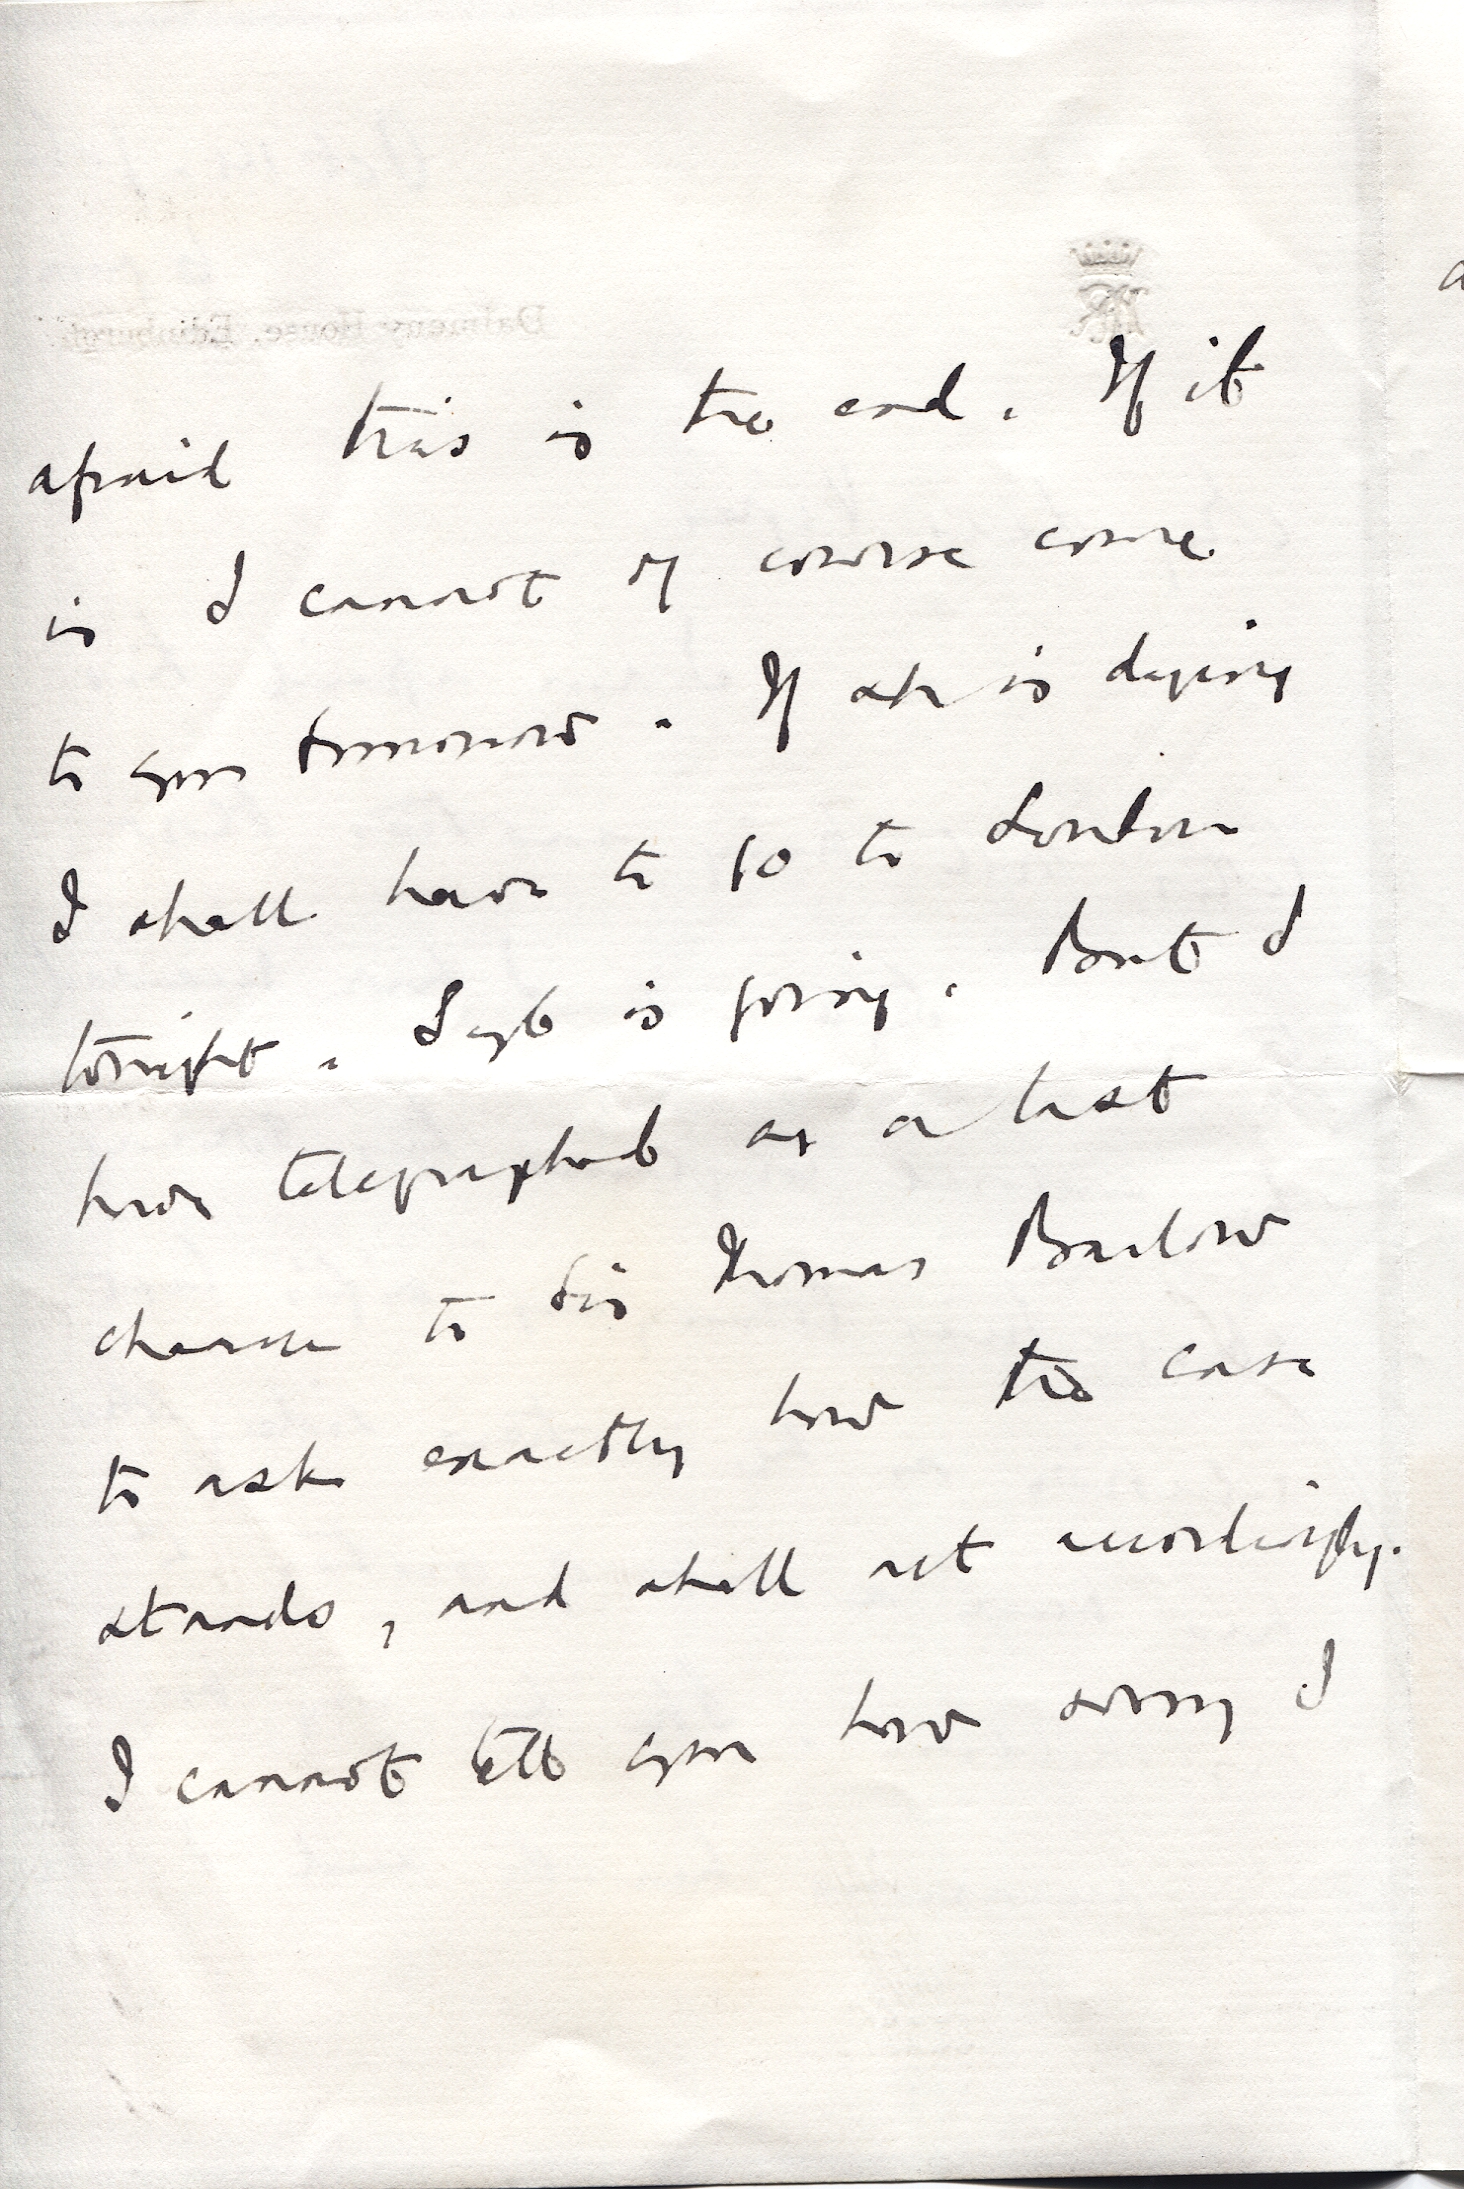 Dalmeny House, Edinburgh.
afraid this is the end. If it
is I cannot of course come
to you tomorrow. If she is dying
I shall have to go to London
tonight. Syb is going. But I
have telegraphed as a last
chance to Sir Thomas Barlow
to ask exactly how the case
stands, and shall act accordingly.
I cannot tell you how sorry I